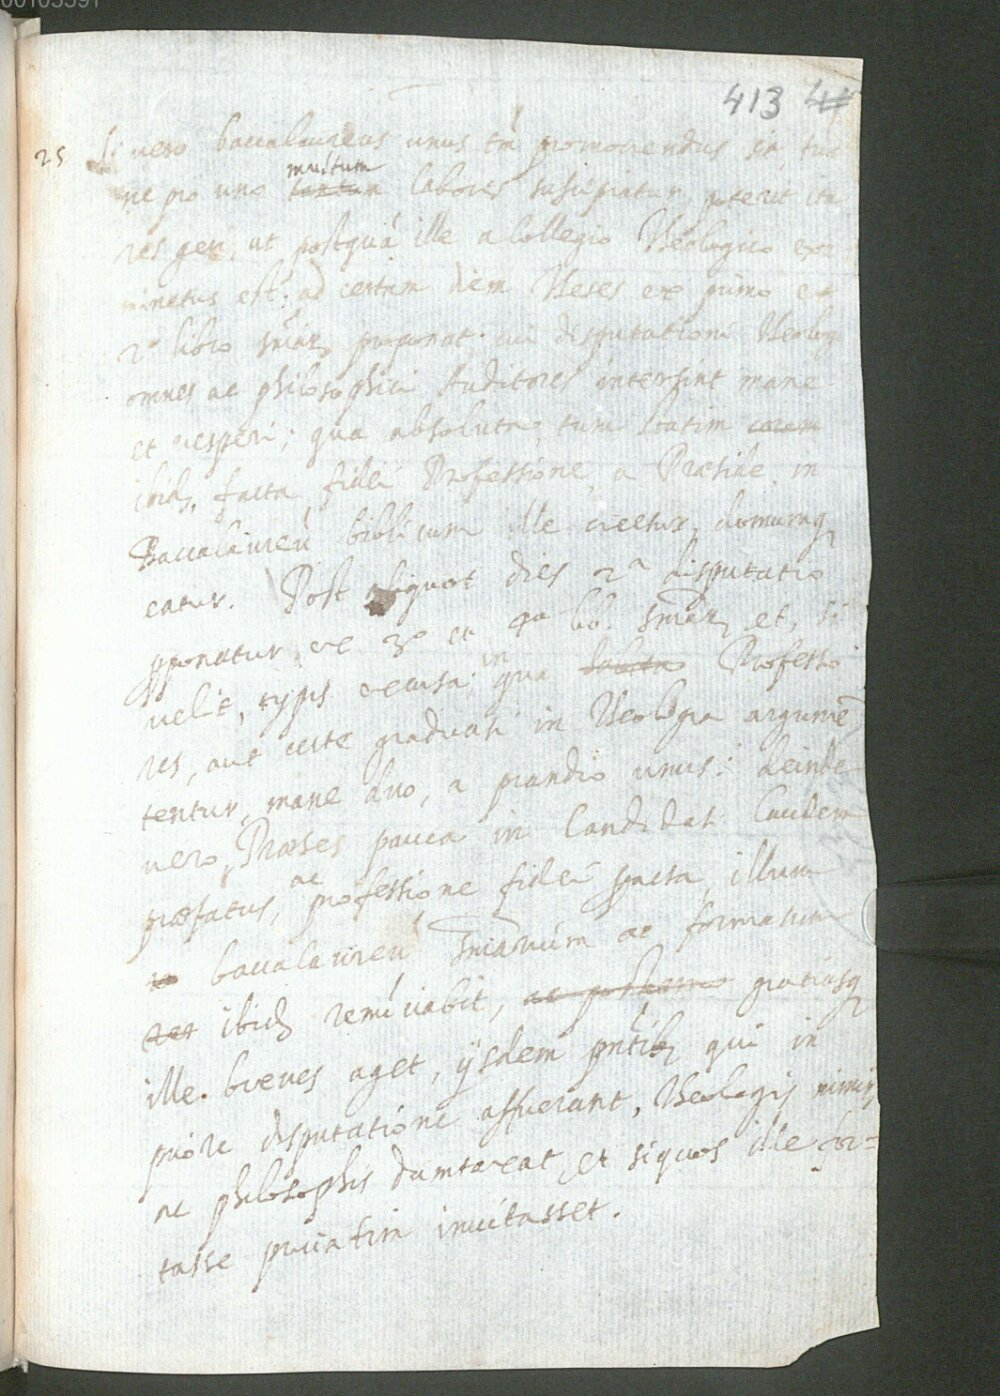 00105391
413 44
25 Si vero baccalaureus unus tm̄ promovendus sit, tu
ne pro uno tantum multum labores suscipiatur, poterit ita
res geri, ut postquā ille a Collegio Theologico exa
minatus est, ad certam diem Theses ex primo et
2o libro sniar, proponat, cui disputationi Theologi
omnes ac philosophici Auditores intersint mane
et vesperi; qua absoluta, tum statim coram
ibid, facta fidei Professione, a Præside in
Baccalaureū biblicum ille creetur, domumq
eatur. Post aliquot dies 2a disputatio
pponatur, ex 3o et 4o lib. sniar, et, si
velit, typis excusa; in qua Professo
res, aut certe graduati in Theologia argumē
tentur, mane duo, a prandio unus: deinde
vero, Præses pauca in Candidati laudem
præfatus, ac professione fidei facta, illum
baccalaureū sniarium ac formatum
ibid renūciabit, ac postremo gratiasq
ille breves aget, ijsdem pntib, qui in
priore disputatione affuerant, Theologis nimir,
ac philosophis dumtaxat, et siquos ille for=
tasse privatim invitasset.